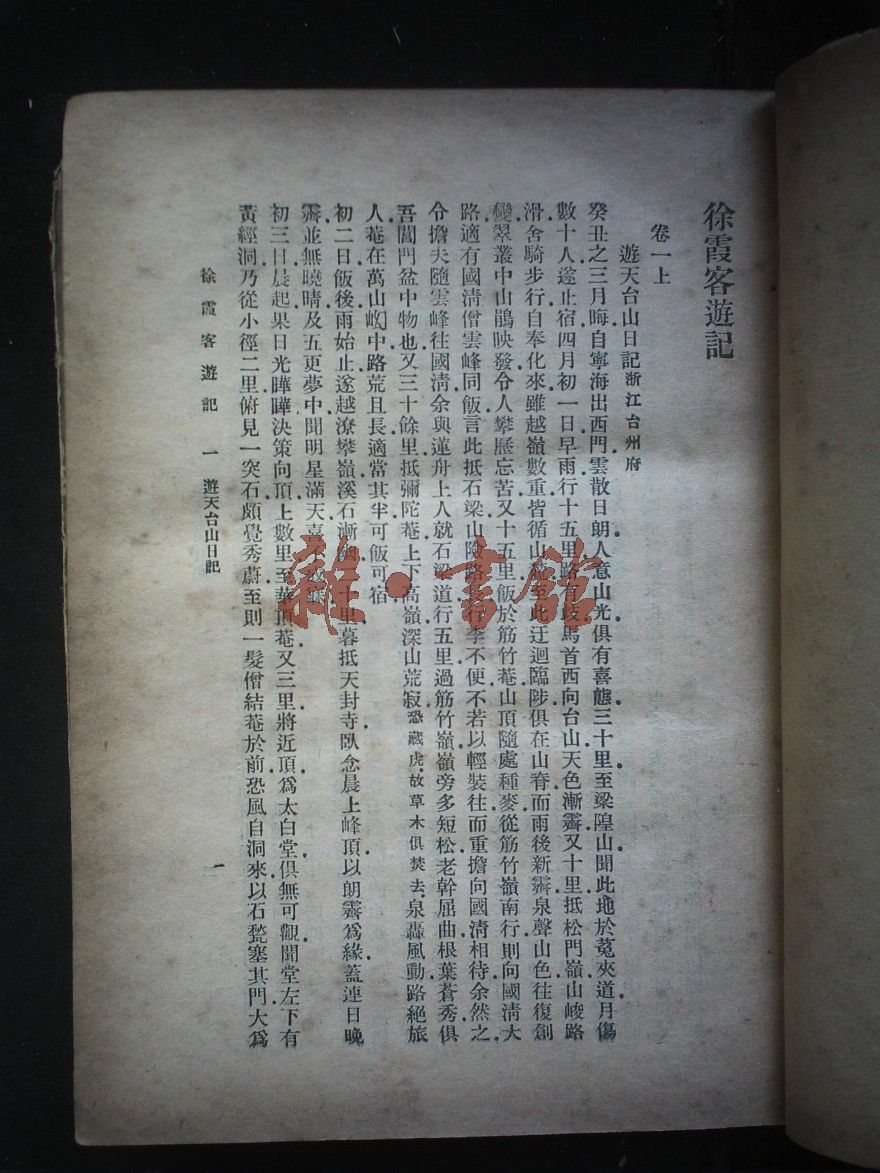 徐霞客遊記
卷一上
遊天台山日記浙江台州府
癸丑之三月晦自寧海出西門雲散日朗人意山光俱有喜態三十里至梁隍山聞此地於菟夾道月傷
數十人遂止宿四月初一日早雨行十五里路有歧馬首西向台山天色漸霽又十里抵松門嶺山峻路
滑舍騎步行自奉化來雖越嶺數重皆循山麓至此迂迴臨陟俱在山脊而雨後新霽泉聲山色往復創
變翠叢中山鵑映發令人攀歷忘苦又十五里飯於筋竹菴山頂隨處種麥從筋竹嶺南行則向國清大
路適有國清僧雲峰同飯言此抵石梁山險路長行李不便不若以輕裝往而重擔向國清相待余然之
令擔夫隨雲峰往國清余與蓮舟上人就石梁道行五里過筋竹嶺嶺旁多短松老幹屈曲根葉蒼秀俱
吾閶門盆中物也又三十餘里抵彌陀菴上下高嶺深山荒寂恐藏虎故草木俱焚去泉轟風動路絕旅
人菴在萬山坳中路荒且長適當其半可飯可宿
初二日飯後雨始止遂越潦攀嶺溪石漸幽二十里暮抵天封寺臥念晨上峰頂以朗霽爲緣蓋連日晚
霽並無曉晴及五更夢中聞明星滿天喜不成寐
初三日晨起果日光曄曄決策向頂上數里至華頂菴又三里將近頂爲太白堂俱無可觀聞堂左下有
黃經洞乃從小徑二里俯見一突石頗覺秀蔚至則一髮僧結菴於前恐風自洞來以石甃塞其門大爲
徐霞客遊記 一 遊天台山日記
一
雜·書館